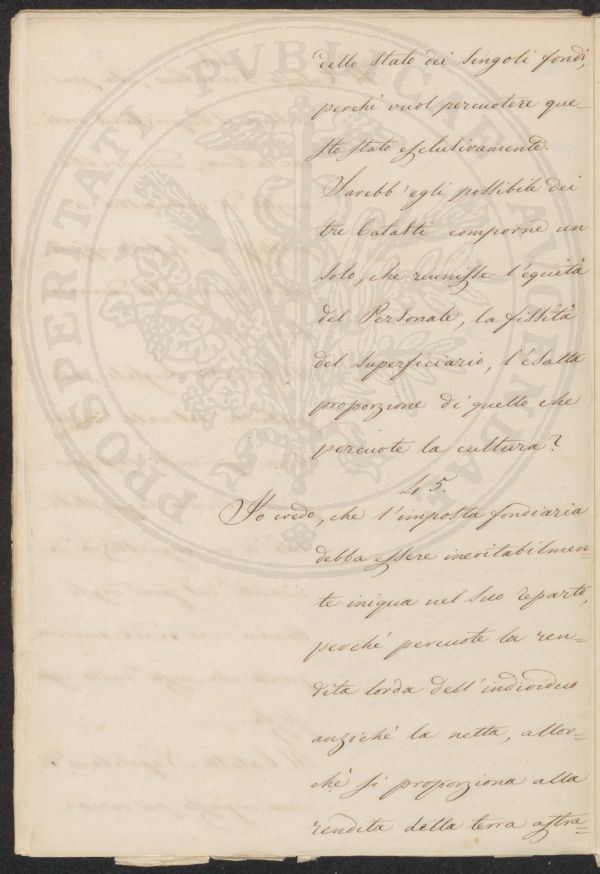 dello stato dei singoli fondi,
perché vuol percuotere que=
sto stato esclusivamente.
Sarebb'egli possibile dei
tre Catasti comporne un
solo, che riunisse l'equità
del Personale, la fissità
del superficiario, l'esatta
proporzione di quello che
percuote la cultura?
45.
Io credo, che l'imposta fondiaria
debba essere inevitabilmen=
te iniqua nel suo reparto,
perché percuote la ren=
dita lorda dell'individuo
anziché la netta, allor=
ché si proporziona alla
rendita della terra astra=
PROSPERITATI PVBLICAE AVGENDAE